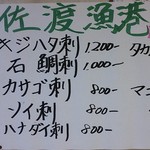 佐渡漁港
キジハタ刺 1200- タカ
石鯛刺 1,000-
カサゴ刺 800- マコ
ソイ刺 800-
ハナダイ刺 800-